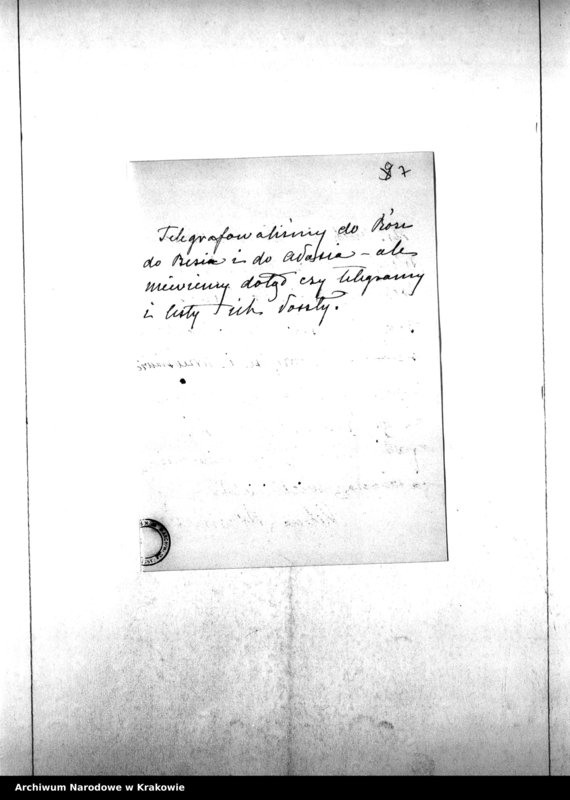 87
Telegrafowaliśmy do Rózi
do Resia i do Adasia – ale
niewiemy dotąd czy telegramy
i listy ich doszły.
Archiwum Narodowe w Krakowie